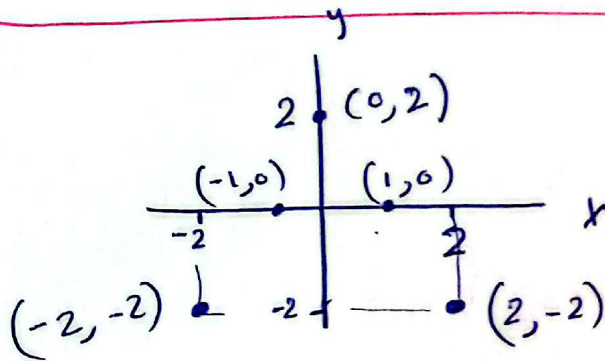 y
2 (0,2)
(-1,0) (1,0)
x
-2 2
(-2,-2) -2 (2,-2)